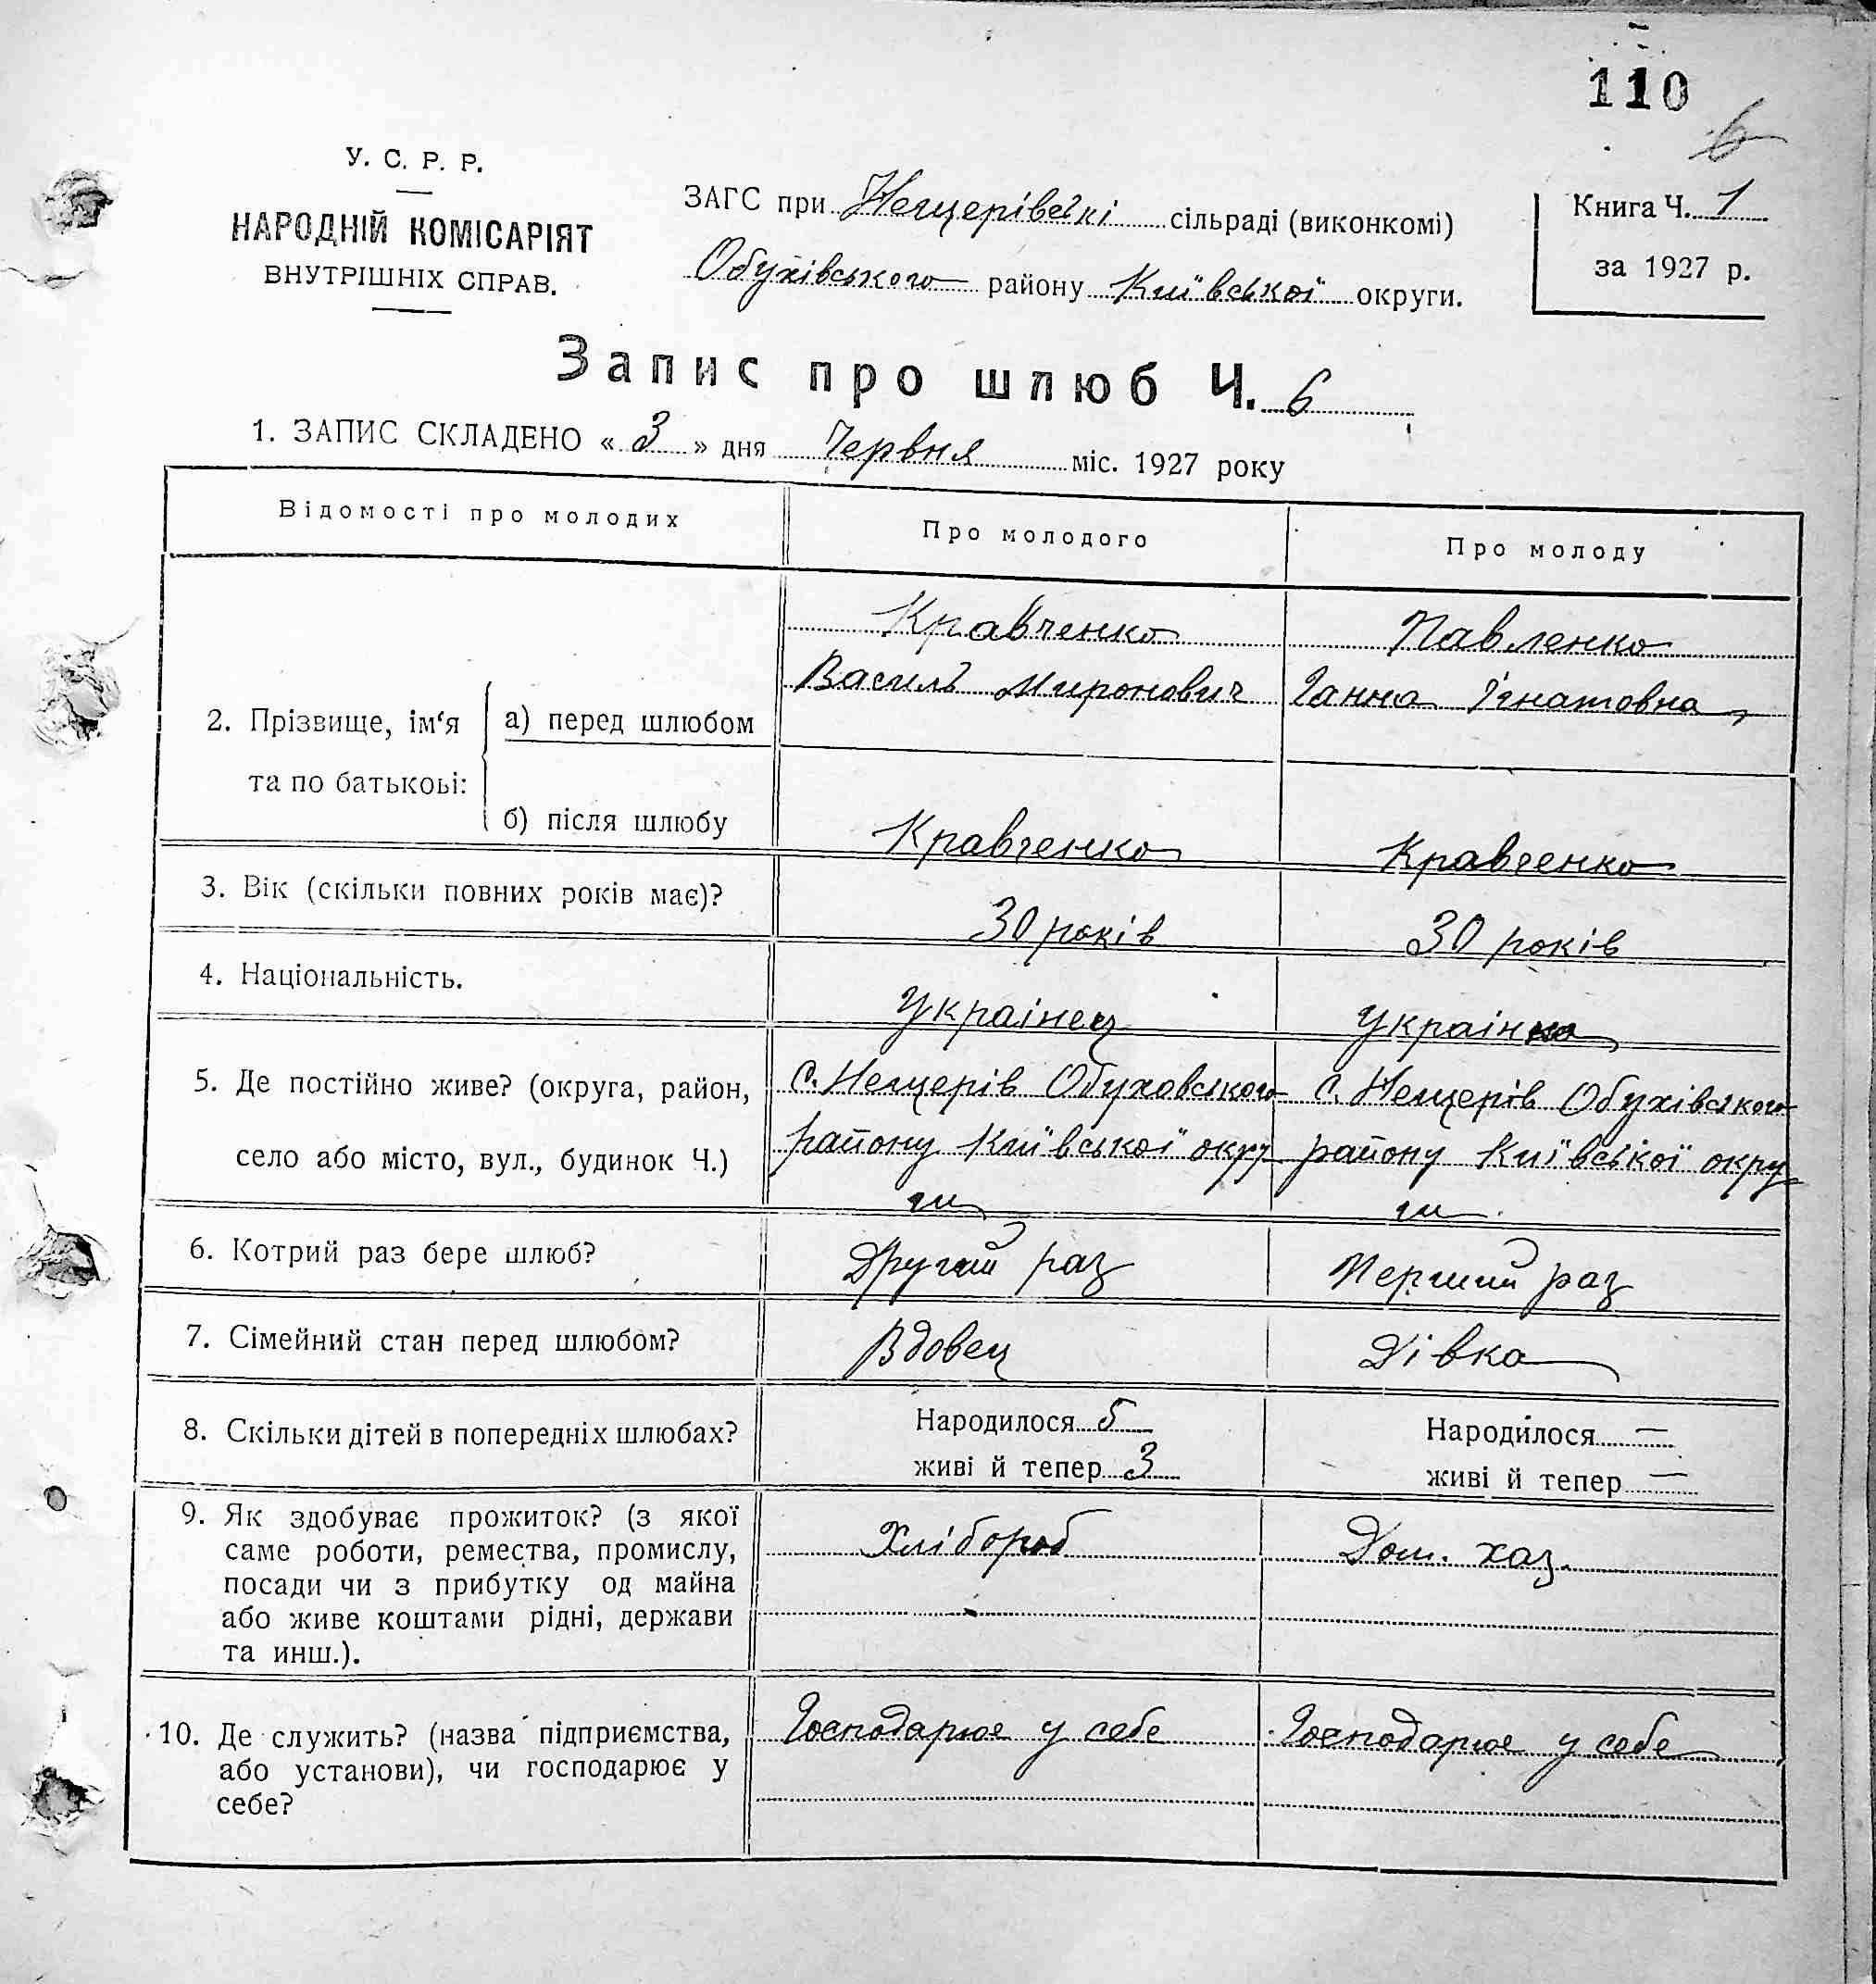 110
6
У. С. Р. Р.
НАРОДНІЙ КОМІСАРІЯТ
ВНУТРІШНІХ СПРАВ.
ЗАГС при Нещерівські сільраді (виконкомі)
Обухівського району Київської округи.
Книга Ч. 1
за 1927 р.
Запис про шлюб Ч. 6
1. ЗАПИС СКЛАДЕНО « 3 » дня Червня міс. 1927 року
Відомості про молодих
Про молодого
Про молоду
2. Прізвище, ім‘я
та по батькові:
а) перед шлюбом
Кравченко
Василь Миронович
Павленко
Ганна Ігнатовна
б) після шлюбу
Кравченко
Кравченко
3. Вік (скільки повних років має)?
30 років
30 років
4. Національність.
Украінец
Украінка
5. Де постійно живе? (округа, район,
село або місто, вул., будинок Ч.)
с. Нещерів Обуховського
району Київської окру
ги
с. Нещерів Обухівського
району Київської окру
ги
6. Котрий раз бере шлюб?
Другий раз
Перший раз
7. Сімейний стан перед шлюбом?
Вдовец
Дівка
8. Скільки дітей в попередніх шлюбах?
Народилося 5
живі й тепер 3
Народилося —
живі й тепер —
9. Як здобуває прожиток? (з якої
саме роботи, ремества, промислу,
посади чи з прибутку од майна
або живе коштами рідні, держави
та инш.).
Хлібороб
Дом. хаз.
10. Де служить? (назва підприємства,
або установи), чи господарює у
себе?
Господарює у себе
Господарює у себе